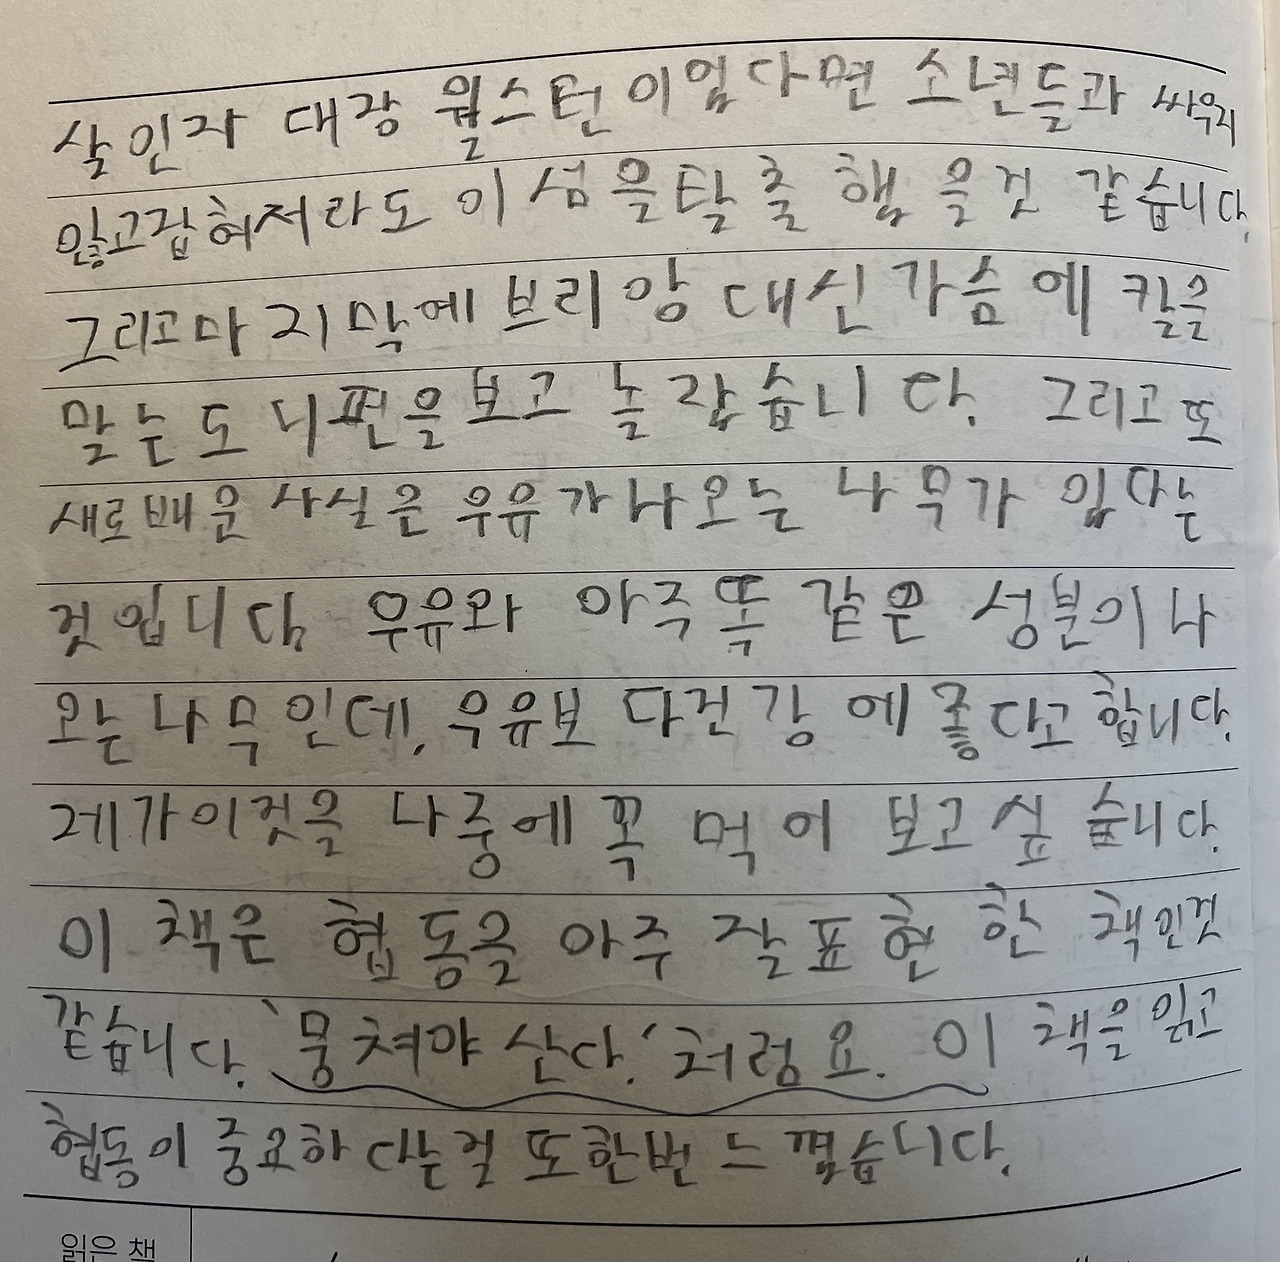 살인자 대장 월스턴이였다면 소년들과 싸우지
않고잡혀저라도 이섬을탈출 했을것 같습니다.
그리고마지막에브리앙 대신가슴에 칼을
맏는도니펀을보고 놀랐습니다. 그리고 또
새로배운 사실은 우유가나오는 나무가 있다는
것입니다. 우유와 아주똑같은 성분이나
오는나무인데, 우유보다건강에좋다고합니다.
제가이것을 나중에꼭 먹어보고싶습니다.
이 책은 협동을 아주 잘표현한 책인것
같습니다. '뭉쳐야 산다.' 처럼요. 이 책을읽고
협동이 중요하다는걸 또한번 느꼈습니다.
읽은 책